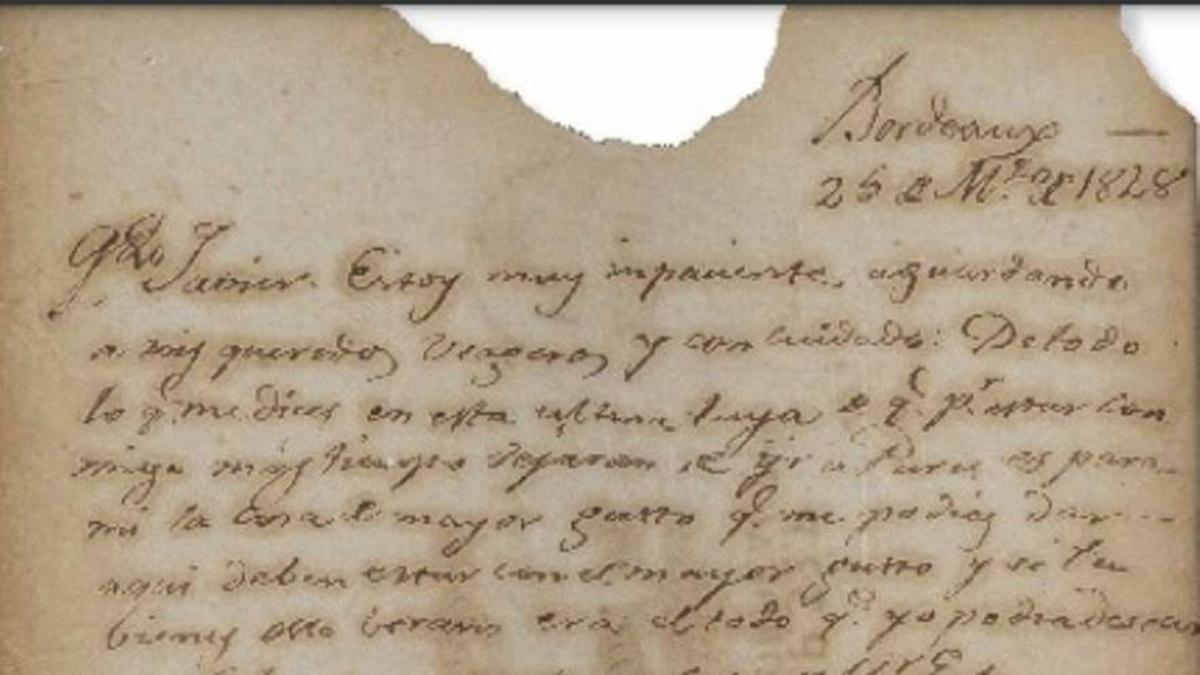 Bordeaux —
26 de M.zo de 1828
Qdo Javier. Estoy muy inpaciente, aguardando
a mis queridos viageros y con cuidado: De todo
lo q.e me dices en esta ultima tuya de q.e p.r estar con
migo más tiempo dejaran de yr a Paris es para
mi la cosa de mayor gusto q.e me podias dar
aqui deben estar con el mayor gusto y si tu
bienes este berano era el todo q.e yo podia desear